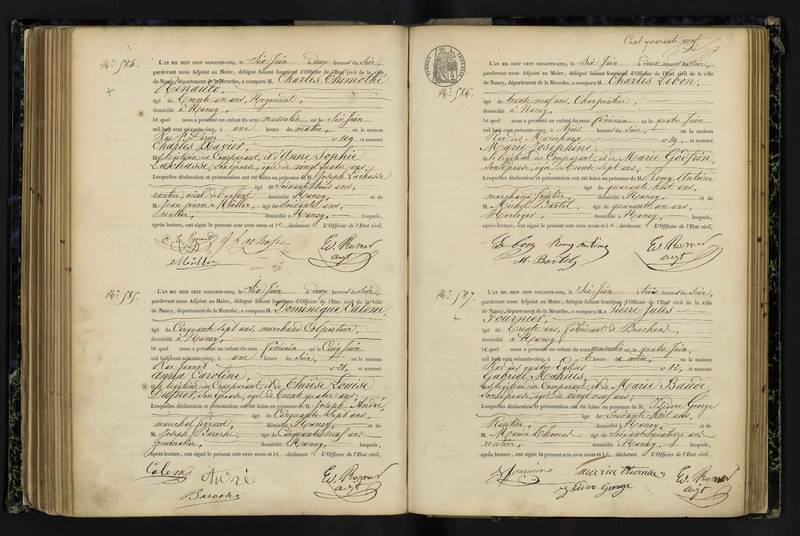 N.° 584.
L'AN MIL HUIT CENT SOIXANTE-CINQ, le Six Juin deux heures du Soir,
pardevant nous Adjoint au Maire, délégué faisant fonctions d'Officier de l'Etat civil de la ville
de Nancy, département de la Meurthe, a comparu M. Charles Thimothé
Renauld,
âgé de Trente un ans, Négociant,
domicilié à Nancy,
lequel nous a présenté un enfant du sexe masculin né le Six Juin
mil huit cent soixante-cinq, à une heure du matin, en la maison
Rue St Dizier n° 109 et nommé
Charles Xavier,
fils légitime du Comparant, et d'Anne Sophie
Lachasse, Son épouse, âgée de vingt quatre ans,
Lesquelles déclaration et présentation ont été faites en présence de M. Joseph Lachasse
âgé de Soixante trois ans,
rentier, aïeul de l'enfant domicilié à Nancy, et de
M. Jean pierre Müller, âgé de Soixante ans,
Rentier, domicilié à Nancy, lesquels,
après lecture, ont signé le présent acte avec nous et le déclarant L'Officier de l'Etat civil,
Müller
E. Rumer
adjt
N.° 585.
L'AN MIL HUIT CENT SOIXANTE-CINQ, le Six Juin Deux heures du Soir,
pardevant nous Adjoint au Maire, délégué faisant fonctions d'Officier de l'Etat civil de la ville
de Nancy, département de la Meurthe, a comparu M. Dominique Calem,
âgé de Cinquante Sept ans, marchand Colporteur,
domicilié à Nancy,
lequel nous a présenté un enfant du sexe féminin né le Cinq Juin
mil huit cent soixante-cinq, à une heure du Soir, en la maison
Rue n° 21, et nommé
Anna Caroline,
fille légitime du Comparant, et de Thérèse Louise
Son épouse, âgée de Trente quatre ans;
Lesquelles déclaration et présentation ont été faites en présence de M. Joseph André,
âgé de Cinquante Sept ans,
marechal ferrant, domicilié à Nancy, et de
M. Joseph Baroche, âgé de Cinquante neuf ans
Journalier, domicilié à Nancy, lesquels,
après lecture, ont signé le présent acte avec nous et le déclarant L'Officier de l'Etat civil,
Calem André E. Rumer
Baroche adjt
Cent quarante neuf
N.° 586.
L'AN MIL HUIT CENT SOIXANTE-CINQ, le Six Juin Deux heures du Soir,
pardevant nous Adjoint au Maire, délégué faisant fonctions d'Officier de l'Etat civil de la ville
de Nancy, département de la Meurthe, a comparu M. Charles Lebon,
âgé de trente neuf ans, Charpentier,
domicilié à Nancy,
lequel nous a présenté un enfant du sexe féminin né le quatre Juin
mil huit cent soixante-cinq, à Trois heures du Soir, en la maison
Rue des Maréchaux n° 19 et nommé
Marie Joséphine,
fille légitime du Comparant, et de Marie Godfrin,
Son épouse, âgée de Trente Sept ans,
Lesquelles déclaration et présentation ont été faites en présence de M. Remy Antoine
âgé de quarante huit ans,
marchand fruitier, domicilié à Nancy, et de
M. Michel Bartel, âgé de quarante un ans,
Horloger, domicilié à Nancy, lesquels,
après lecture, ont signé le présent acte avec nous et le déclarant L'Officier de l'Etat civil,
Lebon Remy antoine E. Rumer
M. Bartel adjt
N.° 587.
L'AN MIL HUIT CENT SOIXANTE-CINQ, le Six Juin trois heures du Soir,
pardevant nous Adjoint au Maire, délégué faisant fonctions d'Officier de l'Etat civil de la ville
de Nancy, département de la Meurthe, a comparu M. Pierre Jules
Fournier,
âgé de Trente ans, fabricant de
domicilié à Nancy,
lequel nous a présenté un enfant du sexe masculin né le quatre Juin,
mil huit cent soixante-cinq, à heure du matin, en la maison
Rue des quatre Eglises n° 12, et nommé
Gabriel
fils légitime du Comparant, et de Marie Baude
Son épouse, âgée de vingt neuf ans;
Lesquelles déclaration et présentation ont été faites en présence de M. Isidore George
âgé de Soixante huit ans,
Rentier, domicilié à Nancy, et de
M. Thomas âgé de Soixante quatorze ans
rentier domicilié à Nancy lesquels,
après lecture, ont signé le présent acte avec nous et le déclarant L'Officier de l'Etat civil,
Fournier E. Rumer
George adjt